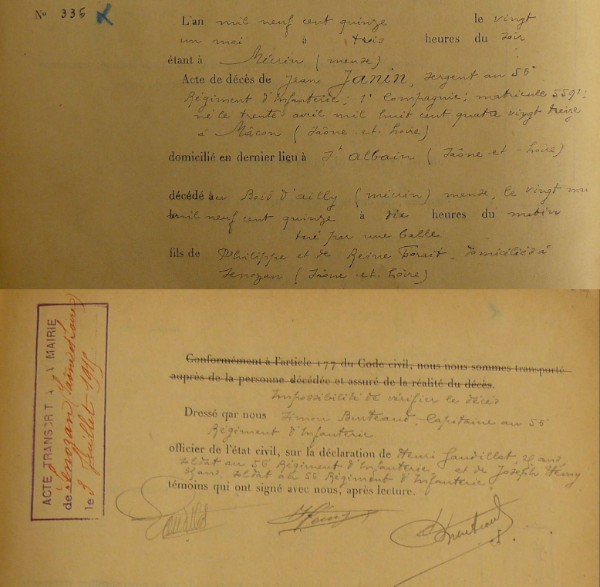 No 336
L'an mil neuf cent quinze le vingt
un mai à trois heures du soir
étant à Mécrin (meuse)
Acte de décès de Jean Janin, sergent au 56e
Régiment d'Infanterie; 1e Compagnie; matricule
né le trente avril mil huit cent quatre vingt treize
à Mâcon (Saône-et-Loire)
domicilié en dernier lieu à St Albain (Saône-et-Loire)
décédé au Bois d'Ailly (mécrin) meuse, le vingt mai
mil neuf cent quinze à dix heures du matin
tué par une balle
fils de Philippe et de Reine domiciliés à
Senozan (Saône-et-Loire)
ACTE TRANSCRIT À LA MAIRIE
de Senozan (Saône et Loire)
le 3 Juillet 1915
Conformément à l'article 177 du Code civil, nous nous sommes transporté
auprès de la personne décédée et assuré de la réalité du décès.
Impossibilité de vérifier le décès
Dressé qar nous Simon Capitaine au 56e
Régiment d'Infanterie
officier de l'état civil, sur la déclaration de Henri Gaudillat
soldat au 56 Régiment d'Infanterie et de Joseph Hémy
ans, soldat au 56 Régiment d'Infanterie
témoins qui ont signé avec nous, après lecture.